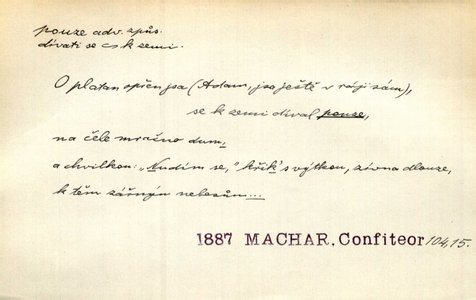 pouze adv. způs.
dívati se cs k zemi.
O platan opřen jsa (Adam, jso ještě v ráji sám),
se k zemi díval pouze,
na čele mračno dum,
a chvilkou: „Nudím se," křik' s výtkou, zívna dlouze,
k těm zářným nebesům...
1887 MACHAR, Confiteor 104,15.